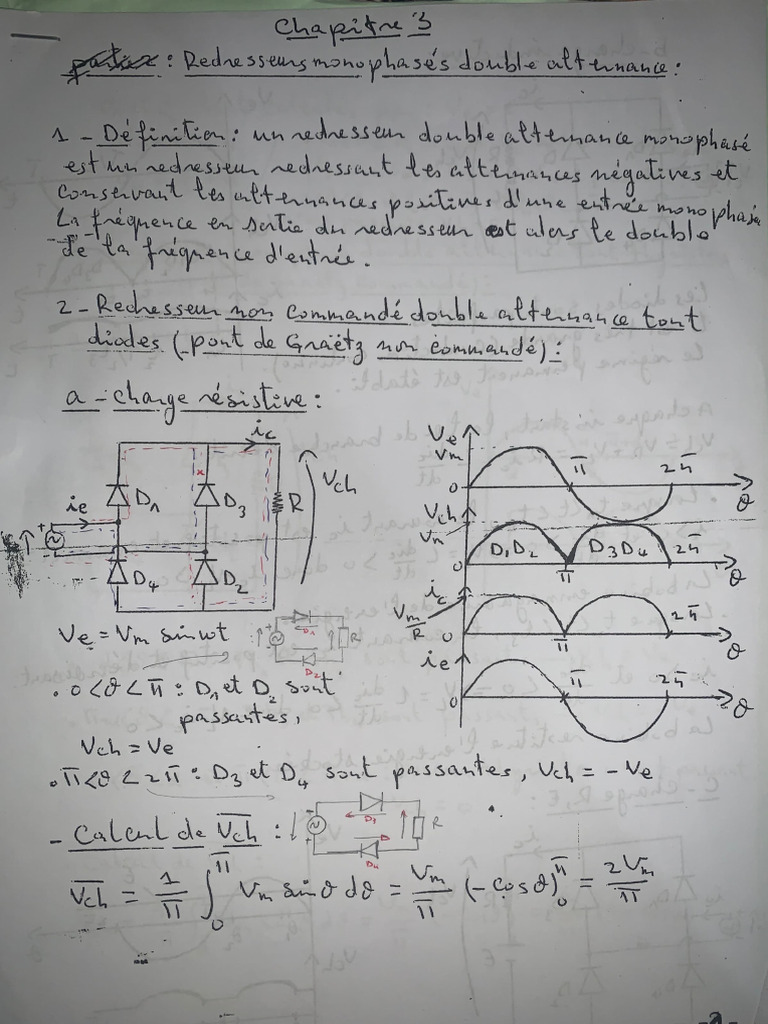 Chapitre 3
: Redresseurs monophasés double alternance :
1 - Définition : un redresseur double alternance monophasé
est un redresseur redressant les alternances négatives et
conservant les alternances positives d'une entrée monophasée
La fréquence en sortie du redresseur est alors le double
de la fréquence d'entrée.
2 - Redresseur non commandé double alternance tout
diodes (pont de Graëtz non commandé) :
a - charge résistive :
ic
ie
D1
D3
D4
D2
R
Vch
+
Ve
Vm
0
π
2π
θ
Vch
Vm
0
D1D2
D3D4
π
2π
θ
ic
Vm/R
0
π
2π
θ
ie
0
π
2π
θ
Ve = Vm sin ωt
D1
D2
R
. 0 < θ < π : D1 et D2 sont
passantes,
Vch = Ve
. π < θ < 2π : D3 et D4 sont passantes, Vch = - Ve
- Calcul de V̅c̅h̅ :
D3
D4
R
V̅c̅h̅ = 1/π ∫₀^π Vm sin θ dθ = Vm/π (-cos θ)₀^π = 2Vm/π